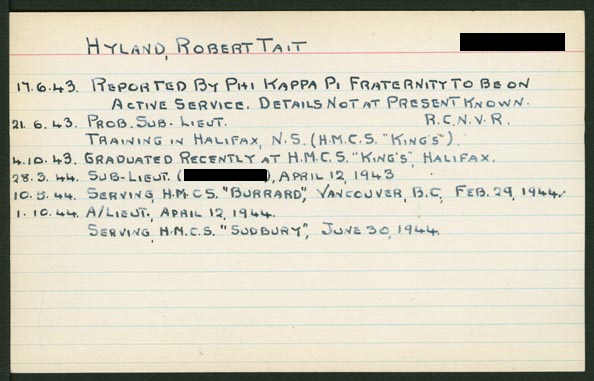 HYLAND, ROBERT TAIT
17.6.43. REPORTED BY PHI KAPPA PI FRATERNITY TO BE ON
ACTIVE SERVICE. DETAILS NOT AT PRESENT KNOWN.
21.6.43. PROB. SUB-LIEUT. R.C.N.V.R.
TRAINING IN HALIFAX, N.S. (H.M.C.S. "KING'S").
4.10.43. GRADUATED RECENTLY AT H.M.C.S. "KING'S", HALIFAX.
28.3.44. SUB-LIEUT. ( ), APRIL 12, 1943
10.5.44. SERVING, H.M.C.S. "BURRARD", VANCOUVER, B.C, FEB. 29, 1944.
1.10.44. A/LIEUT., APRIL 12, 1944.
SERVING, H.M.C.S. "SUDBURY", JUNE 30, 1944.